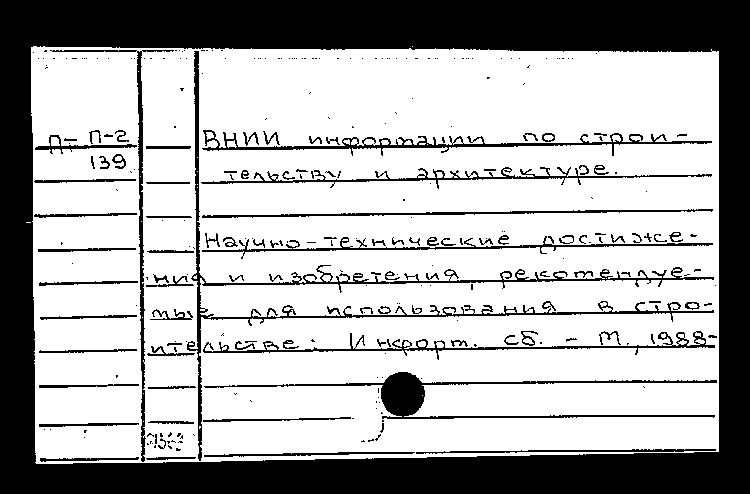 П-2 ВНИИ информации по строи-
139 тельству и архитектуре.
Научно-технические достиже-
ния и изобретения, рекомендуе-
мые для использования в стро-
ительстве: Информ. сб. - М., 1988-